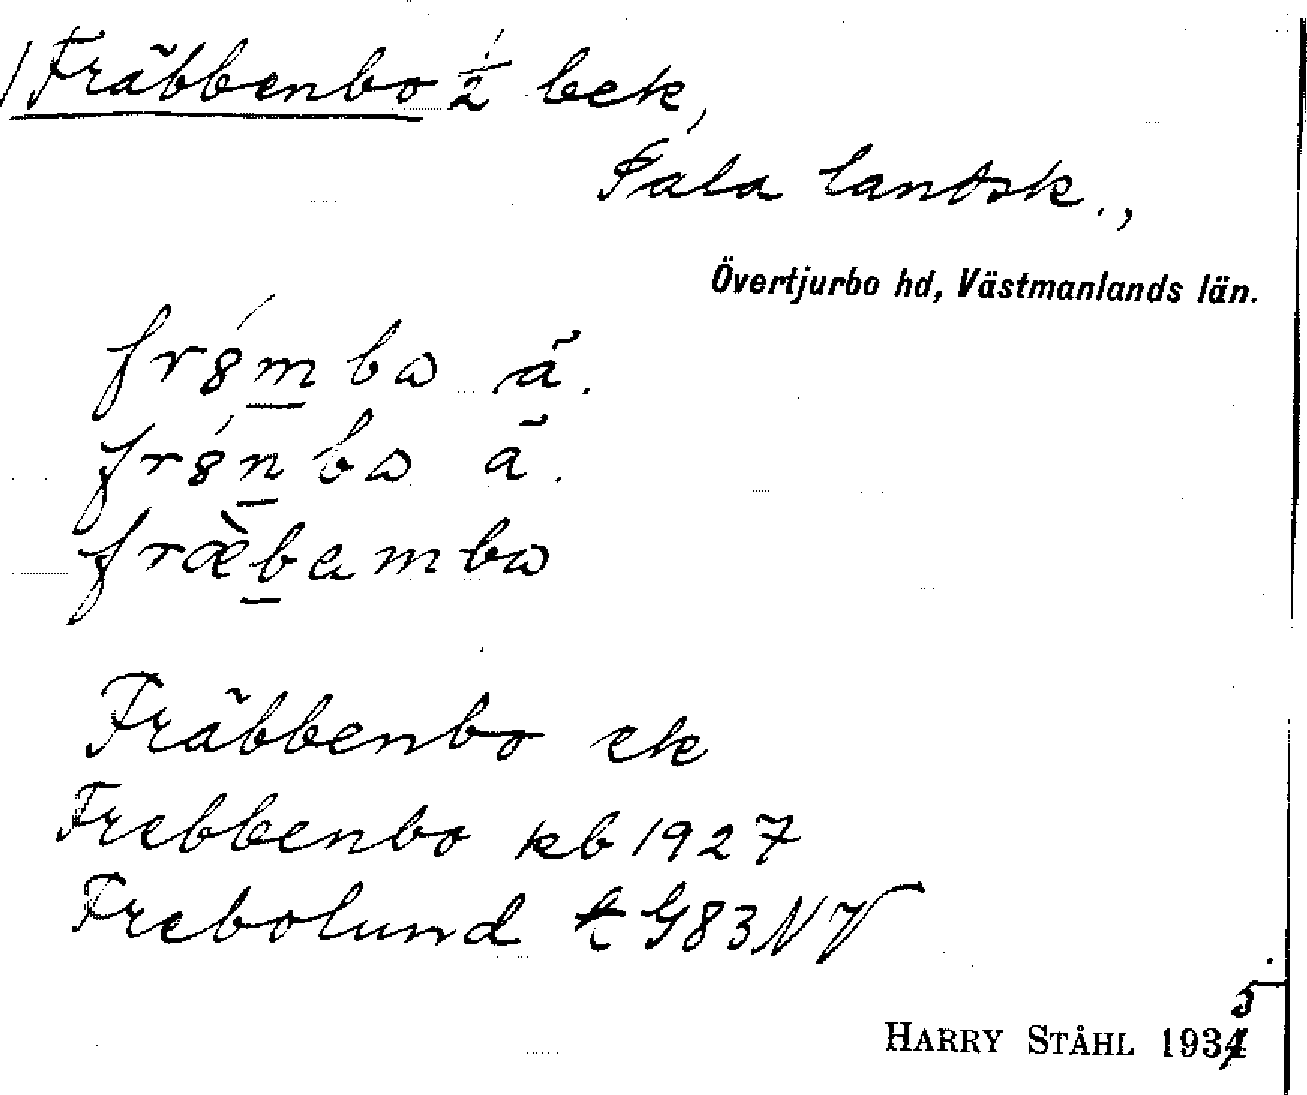 Fräbbenbo ½ bek,
Sala landsk.,
Övertjurbo hd, Västmanlands län.
fr8́mbω ã.
fr8́nbω ã.
fræ̀bambω
Fräbbenbo ek
Frebbenbo kb 1927
Frebolund G83NV
HARRY STÅHL 1935